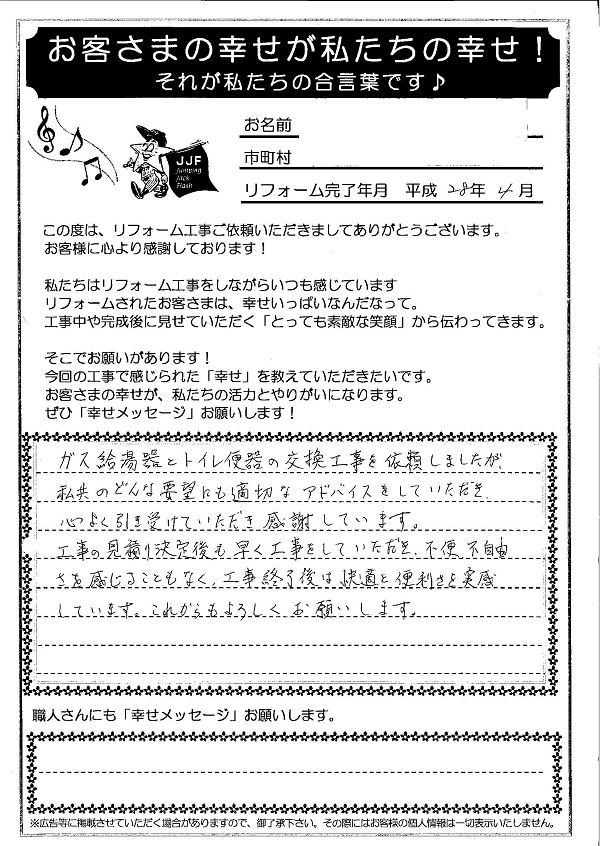 お客さまの幸せが私たちの幸せ！
それが私たちの合言葉です♪
お名前
市町村
JJF
Jumping
Jack
Flash
リフォーム完了年月　平成 28年 4月
この度は、リフォーム工事ご依頼いただきましてありがとうございます。
お客様に心より感謝しております！
私たちはリフォーム工事をしながらいつも感じています
リフォームされたお客さまは、幸せいっぱいなんだなって。
工事中や完成後に見せていただく「とっても素敵な笑顔」から伝わってきます。
そこでお願いがあります！
今回の工事で感じられた「幸せ」を教えていただきたいです。
お客さまの幸せが、私たちの活力とやりがいになります。
ぜひ「幸せメッセージ」お願いします！
ガス給湯器とトイレ便器の交換工事を依頼しましたが、
私共のどんな要望にも適切なアドバイスをしていただき、
心よく引き受けていただき感謝しています。
工事の見積り決定後も早く工事をしていただき、不便不自由
さを感じることもなく、工事終了後は快適と便利さを実感
しています。これからもよろしくお願いします。
職人さんにも「幸せメッセージ」お願いします。
※広告等に掲載させていただく場合がありますので、御了承下さい。その際にはお客様の個人情報は一切表示いたしません。